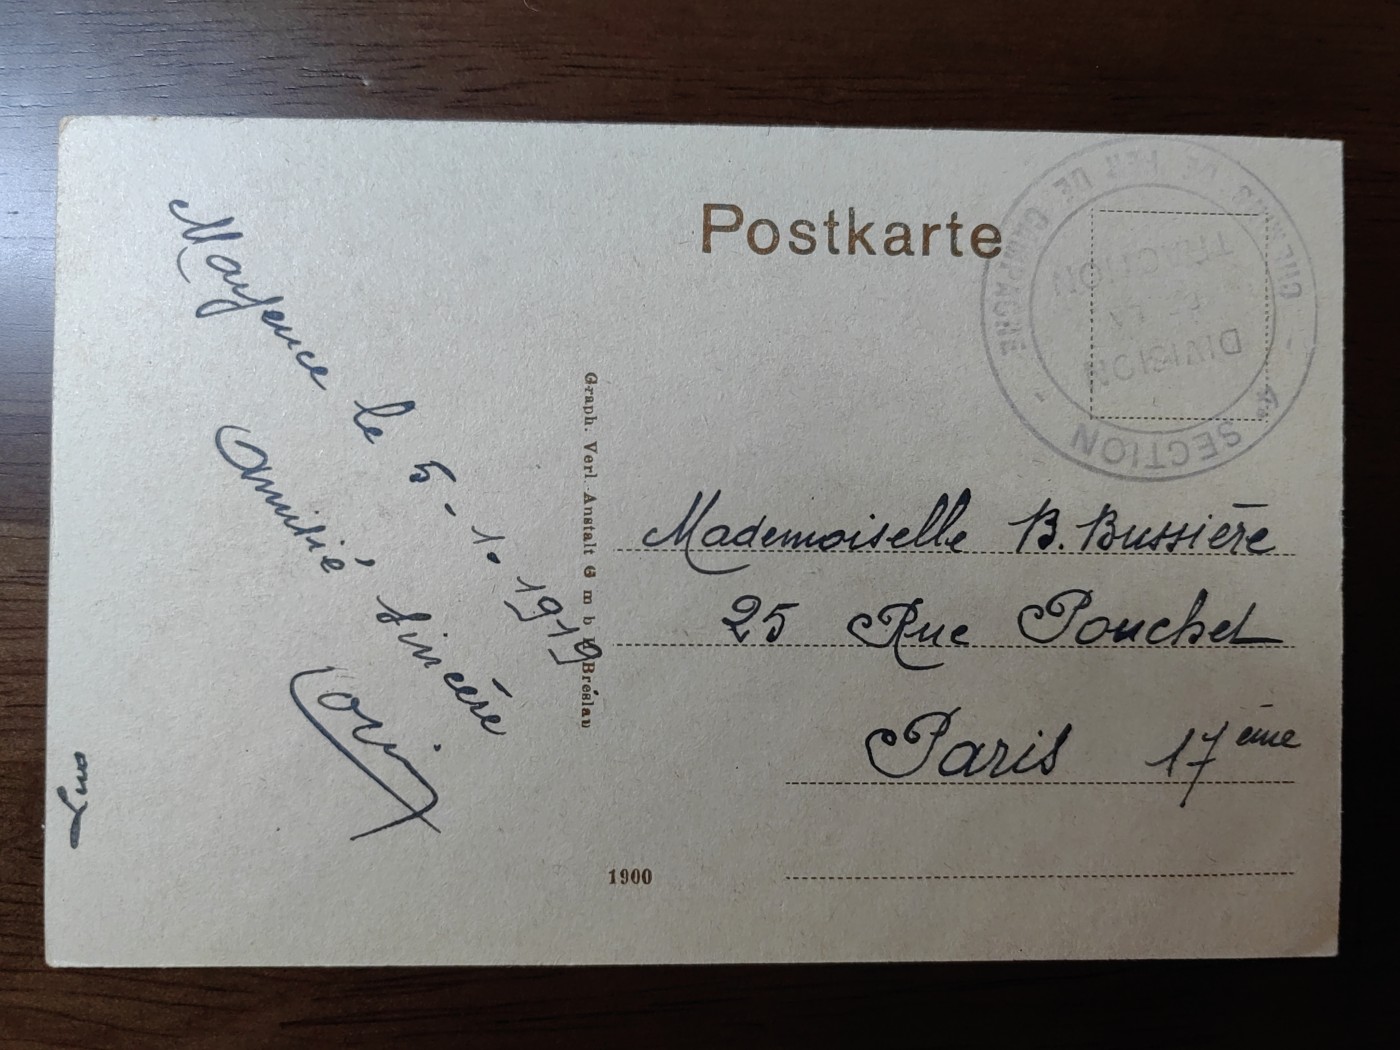 Postkarte
CHEMINS DE FER DE CAMPAGNE
SECTION
DIVISION
LA
TRACTION
Mayence le 5-1.1919
Amitié sincère
Graph. Verl.-Anstalt G m b H Breslau
Mademoiselle B. Bussière
25 Rue Pouchet
Paris 17ème
1900